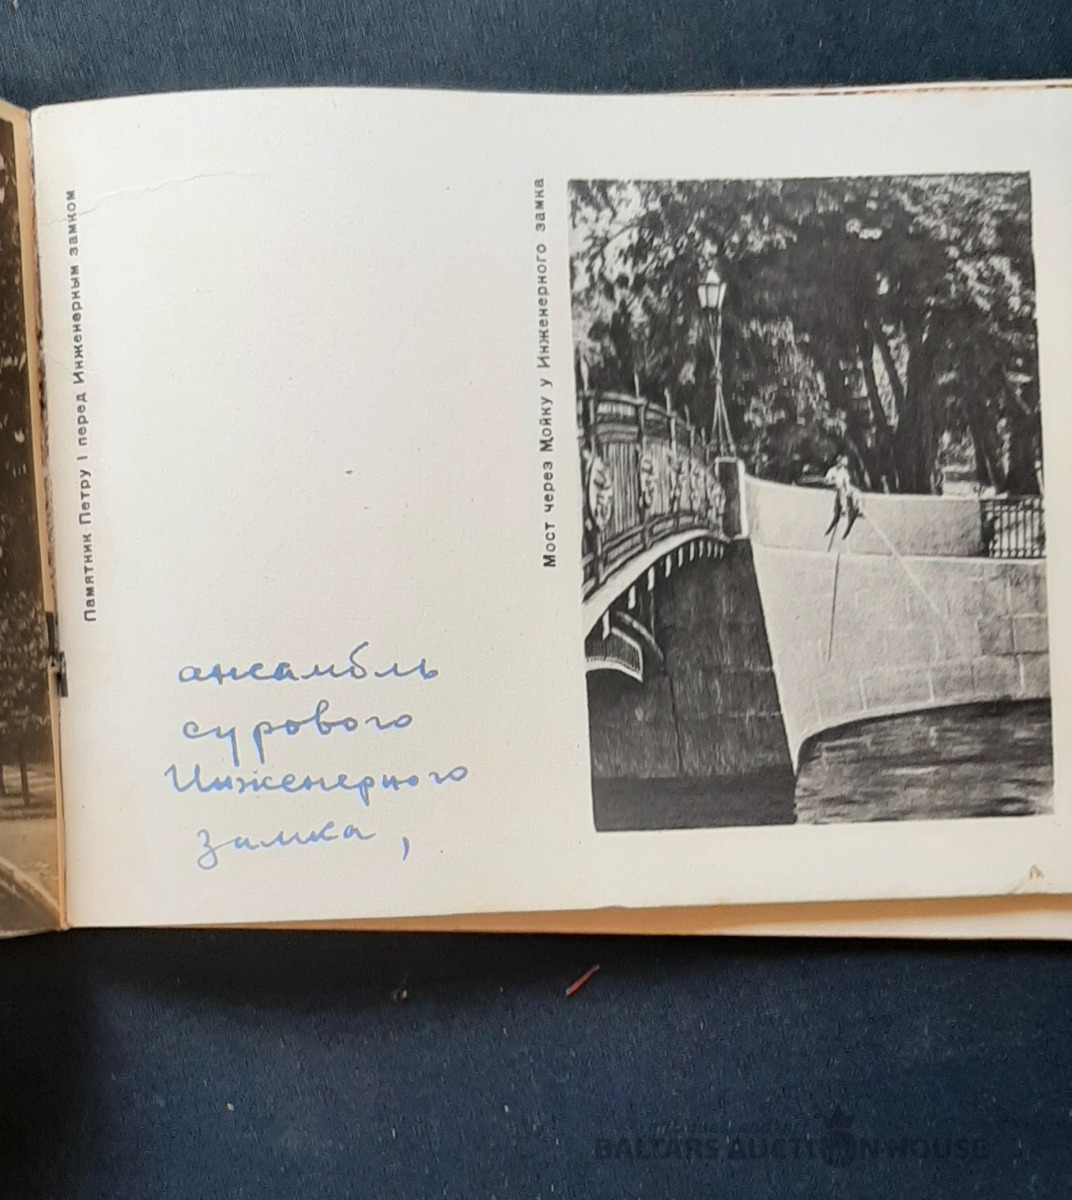 Памятник Петру I перед Инженерным замком
Мост через Мойку у Инженерного замка
ансамбль
сурового
Инженерного
замка,
BALTARS AUCTION HOUSE